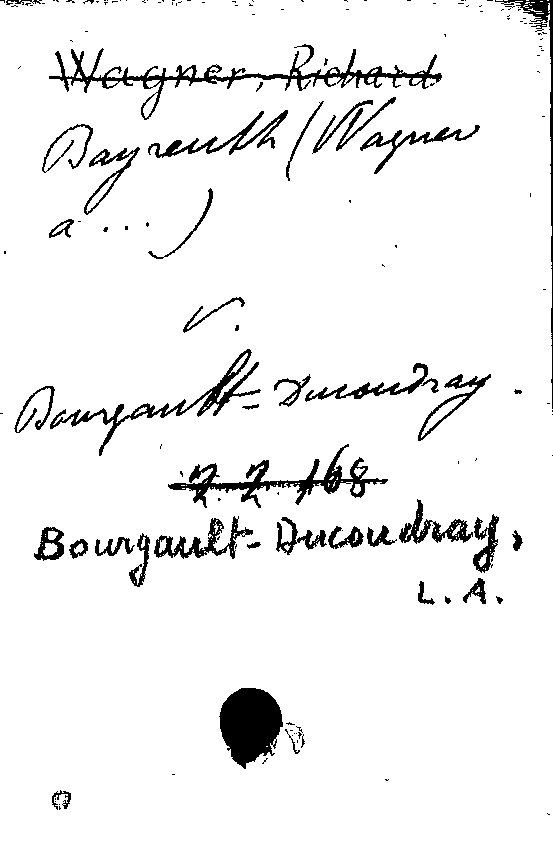 Wagner, Richard
Bayreuth (Wagner
a ... )
v.
Bourgault-Ducoudray.
2 2 168
Bourgault-Ducoudray,
L. A.